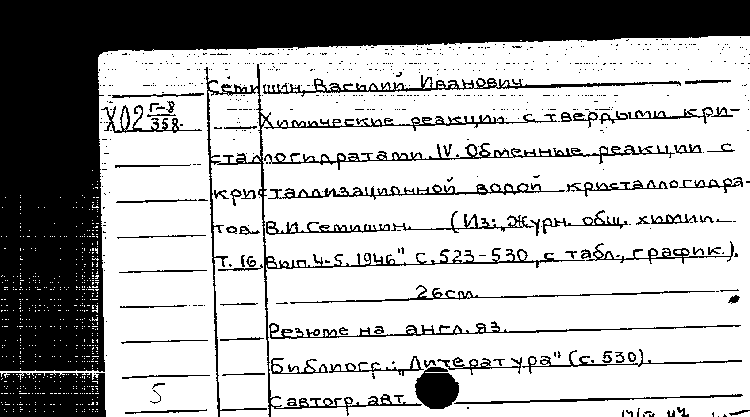 Семишин, Василий Иванович.
Х02 Г-8/358.
Химические реакции с твердыми кри-
сталлогидратами. IV. Обменные реакции с
кристаллизационной водой кристаллогидра-
тов. В.И. Семишин. (Из: „Журн. общ. химии.
Т. 16. Вып. 4-5. 1946". С. 523-530, с табл., график.).
26см.
Резюме на англ. яз.
Библиогр.: „Литература" (с. 530).
5
С автогр. авт.